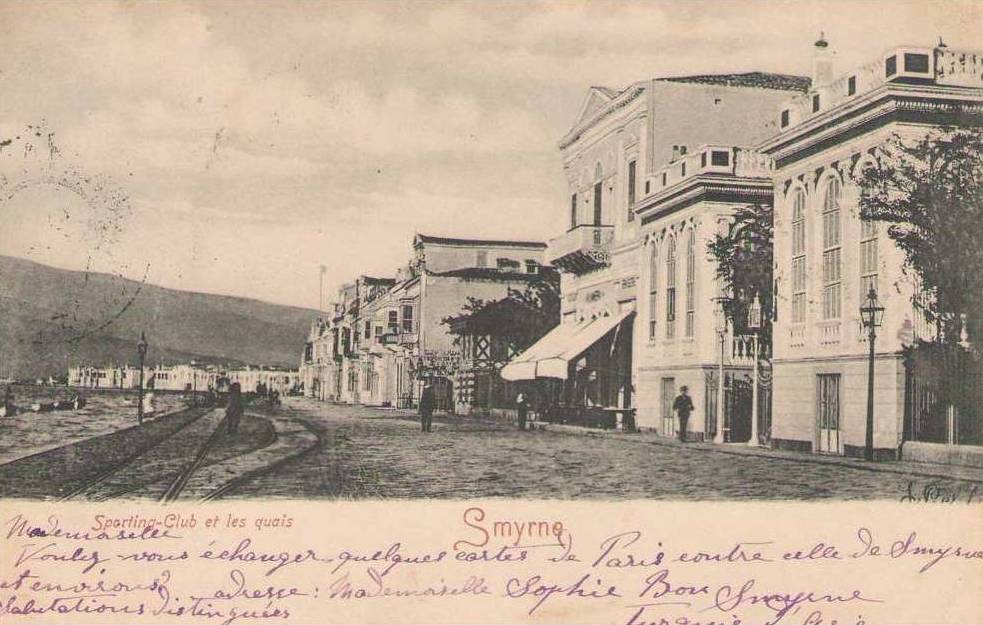 Sporting-Club et les quais
Smyrne
Mademoiselle
Voulez-vous échanger quelques cartes de Paris contre celle de Smyrne
et environs? adresse: Mademoiselle Sophie Bon Smyrne
Salutations distinguées
Turquie d'Asie